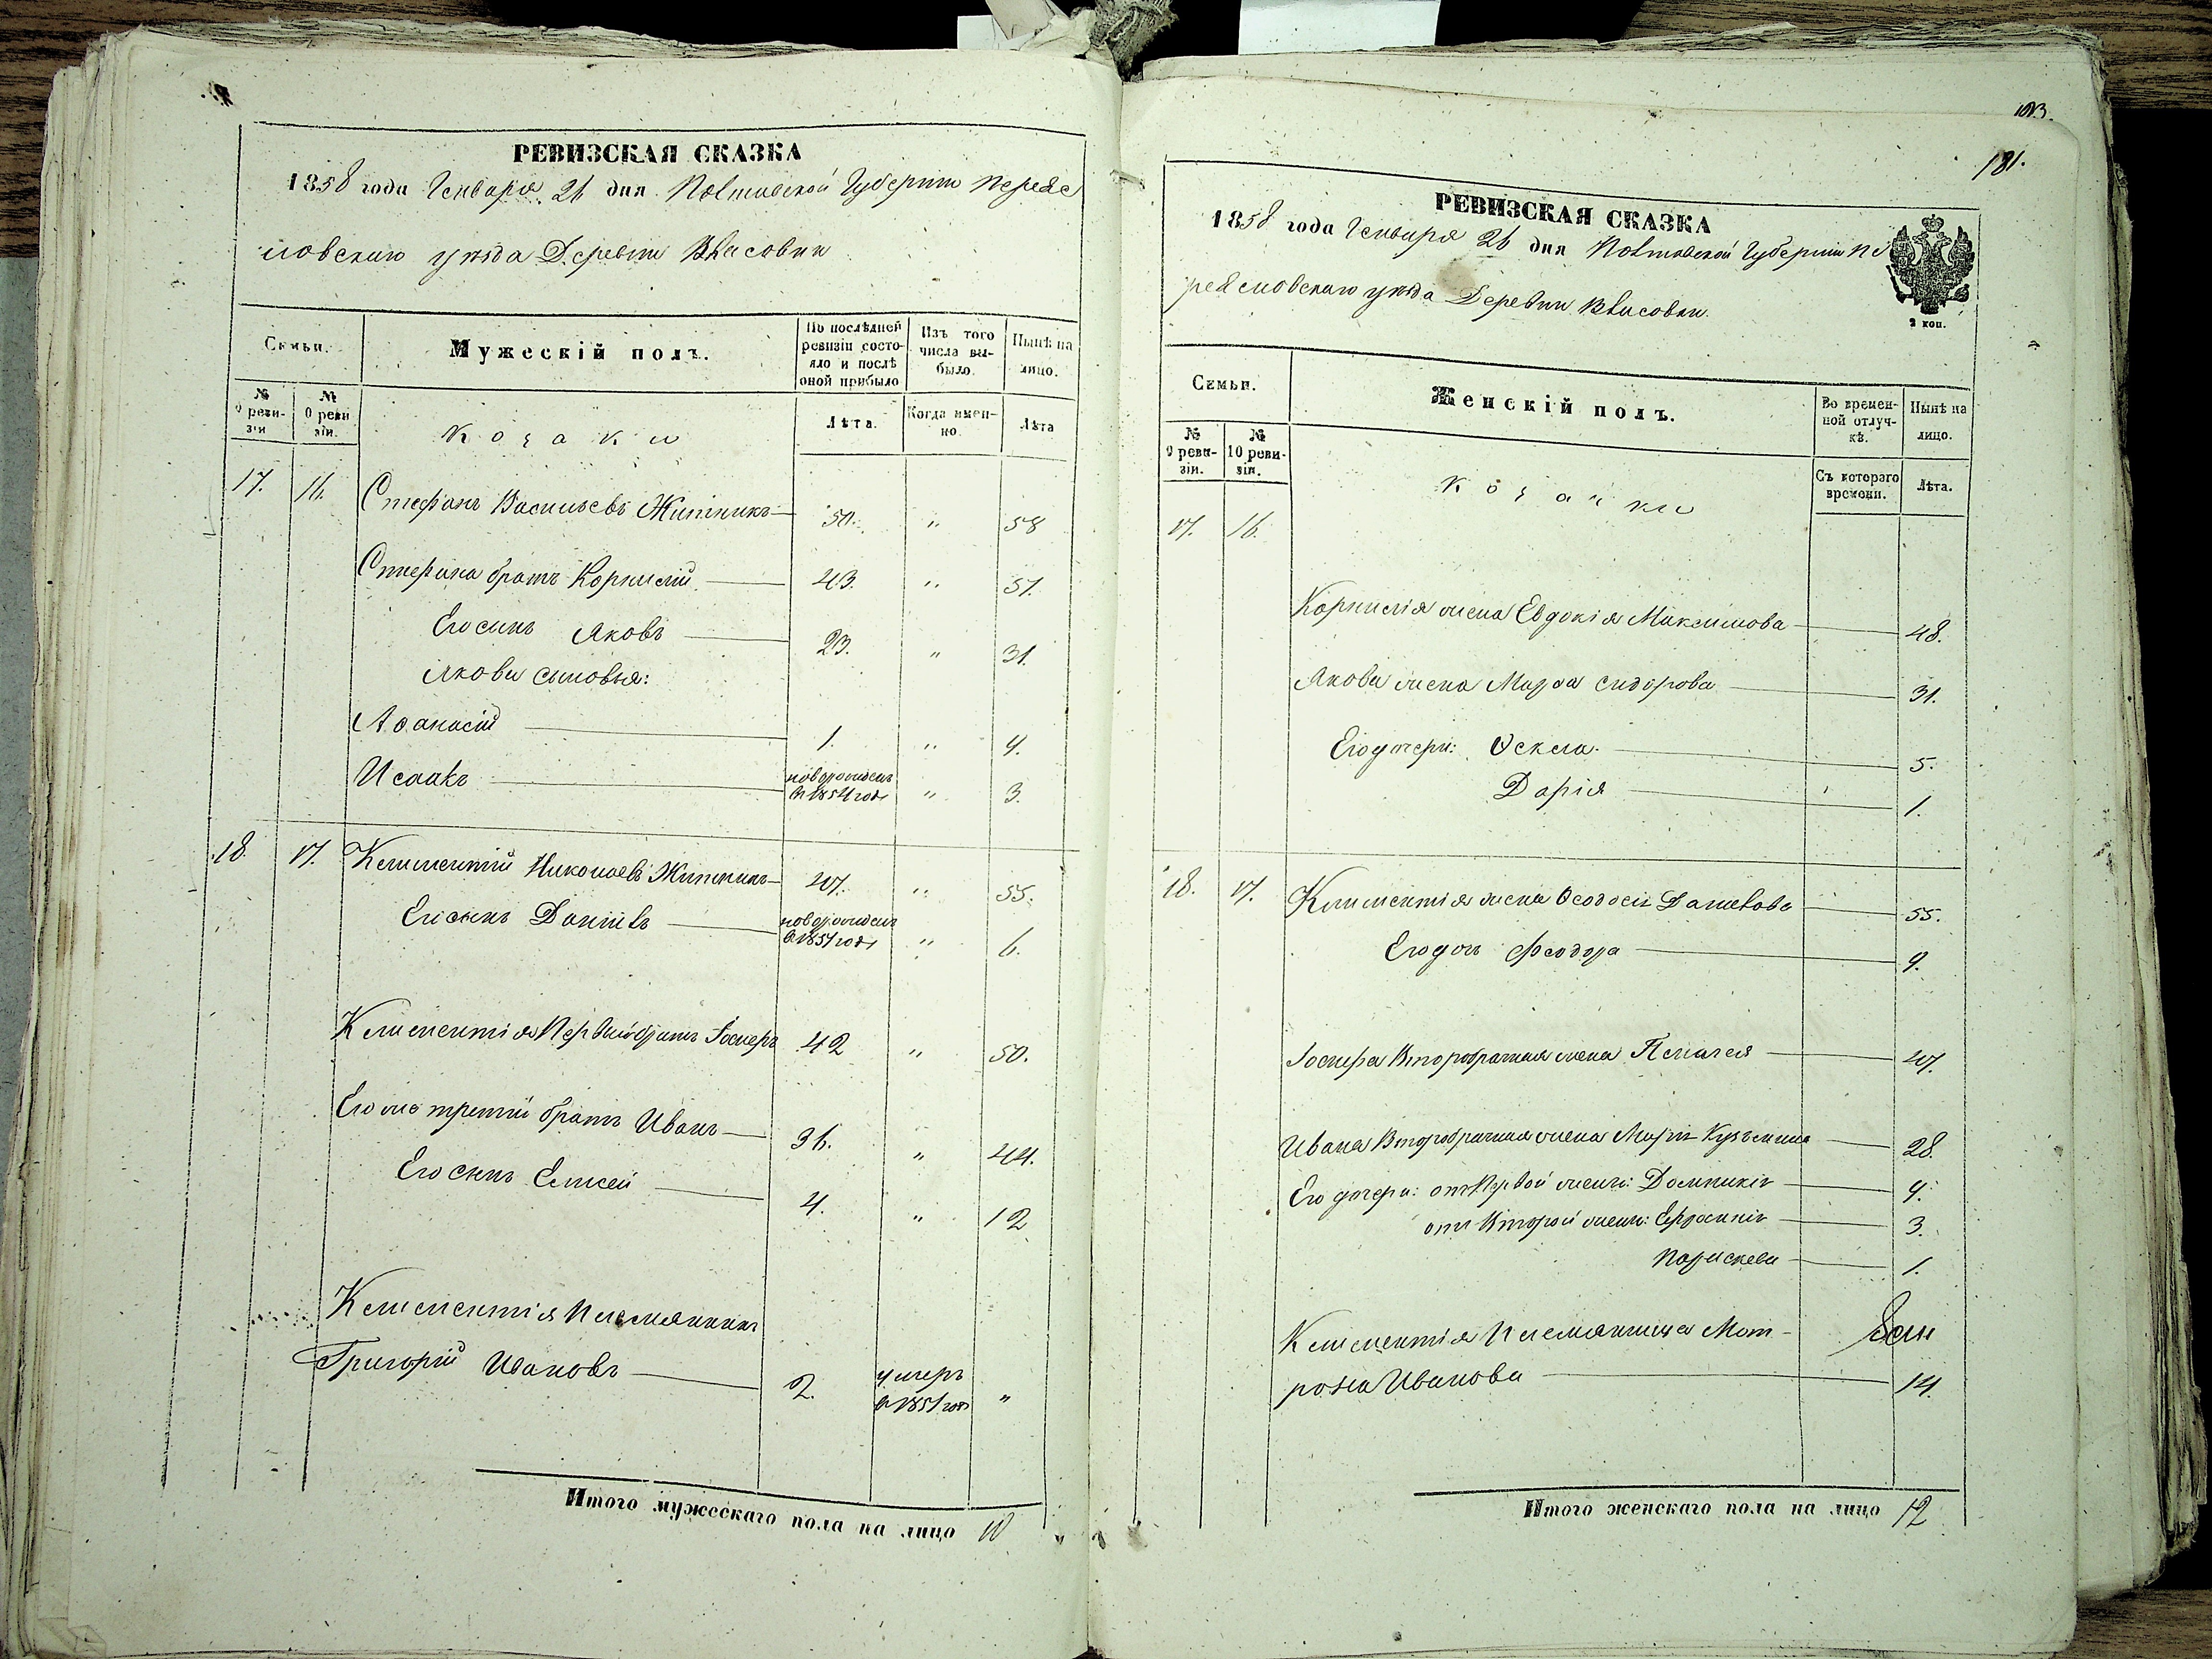 РЕВИЗСКАЯ СКАЗКА
1858 года Генваря 26 дня Полтавской Губернии Перея
словскаго уезда Деревни Власовки
Семьи.
Мужескій полъ.
По послѣдней ревизіи состо-
яло и послѣ
оной прибыло
Изъ того
числа вы-
было.
Нынѣ на
лицо.
№
9 реви-
зіи
№
10 реви
зіи.
Козаки
Лѣта.
Когда имен-
но.
Лѣта
17. 16. Стефанъ Васильевъ Житникъ 50. " 58
Стефана братъ Корнилій 43. " 51.
Его сынъ Яковъ 23. " 31.
Якова сыновья:
Афанасій 1. " 9.
Исаакъ новорожденъ въ 1854 годѣ " 3.
18. 17. Климентій Николаевъ Житникъ 47. " 55.
Его сынъ Даніилъ новорожденъ въ 1851 годѣ " 6.
Климентія Первый братъ Іосифъ 42 " 50.
Его же третій братъ Иванъ 36. " 44.
Его сынъ Елисей 4. " 12
Климентія Племянникъ
Григорій Ивановъ 2. умеръ въ 1851 годѣ "
Итого мужескаго пола на лицо 10
183.
181.
РЕВИЗСКАЯ СКАЗКА
1858 года Генваря 26 дня Полтавской Губерніи Пе
реяславскаго уезда Деревни Власовки.
2 коп.
Семьи.
Женскій полъ.
Во времен-
ной отлуч-
кѣ.
Нынѣ на
лицо.
№
9 реви-
зіи.
№
10 реви-
зіи.
Козачки
Съ котораго
времени.
Лѣта.
17. 16.
Корнилія жена Евдокія Максимова 48.
Якова жена Марфа Сидорова 31.
Его дочери: Фекла. 5.
Дарія 1.
18. 17. Климентія жена Феодосія 55.
Его дочь Феодора 9.
Іосифа Второбрачная жена Пелагея 47.
Ивана Второбрачная жена Марія Кузьмина 28.
Его дочери: отъ Первой жены: Домникія 9.
отъ Второй жены: Ефросинія 3.
Параскева 1.
Климентія Племянница Мот-
рона Иванова 14.
Итого женскаго пола на лицо 12